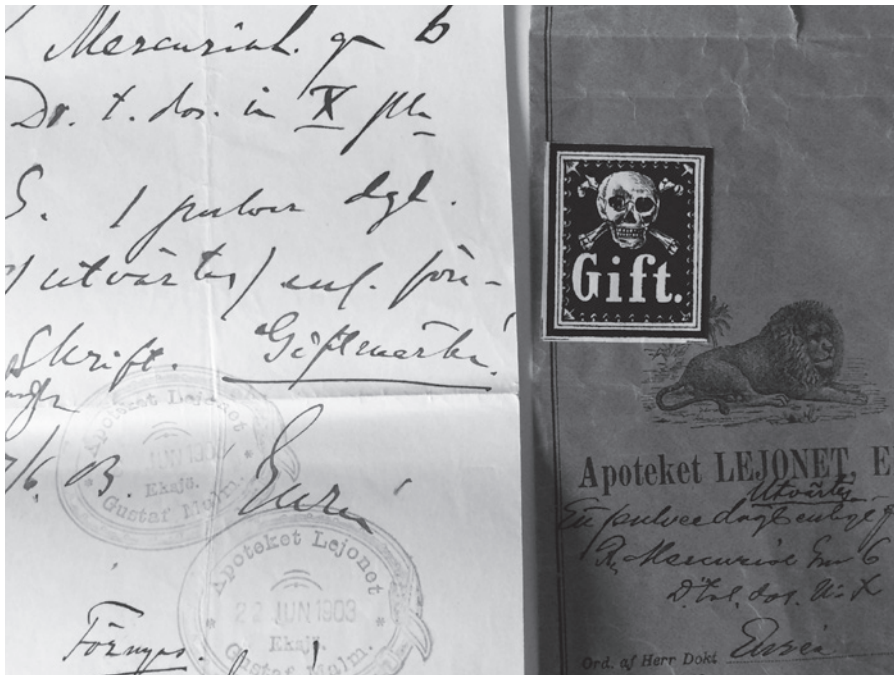 Mercurial. gm 6
D. t. dos. in X
S. 1 pulver dgl.
utvärtes) enl. före-
skrift. Giftmärke!
B.
Apoteket Lejonet
JUN 1903
Eksjö.
Gustaf Malm.
Apoteket Lejonet
22 JUN 1903
Eksjö.
Gustaf Malm.
Förnyas.
Gift.
Apoteket LEJONET, E
Utvärtes
En pulver dagl enligt
R, Mercurial Gm 6
D. tal. dos. No X
Ord. af Herr Dokt